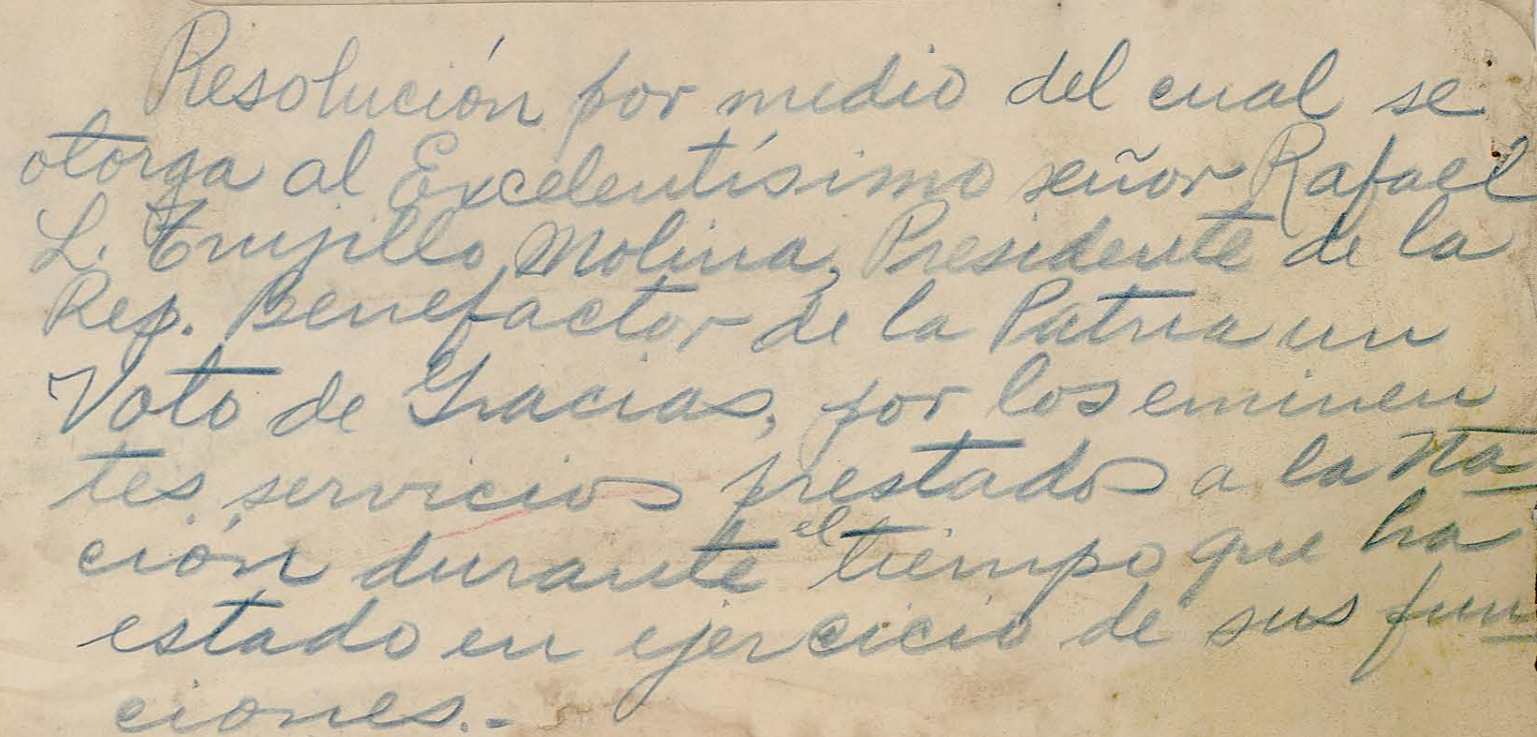 Resolución por medio del cual se
otorga al Excelentísimo señor Rafael
L. Trujillo Molina, Presidente de la
Rep. Benefactor de la Patria un
Voto de Gracias, por los eminen
tes servicios prestados a la Na
ción durante el tiempo que ha
estado en ejercicio de sus fun
ciones.-